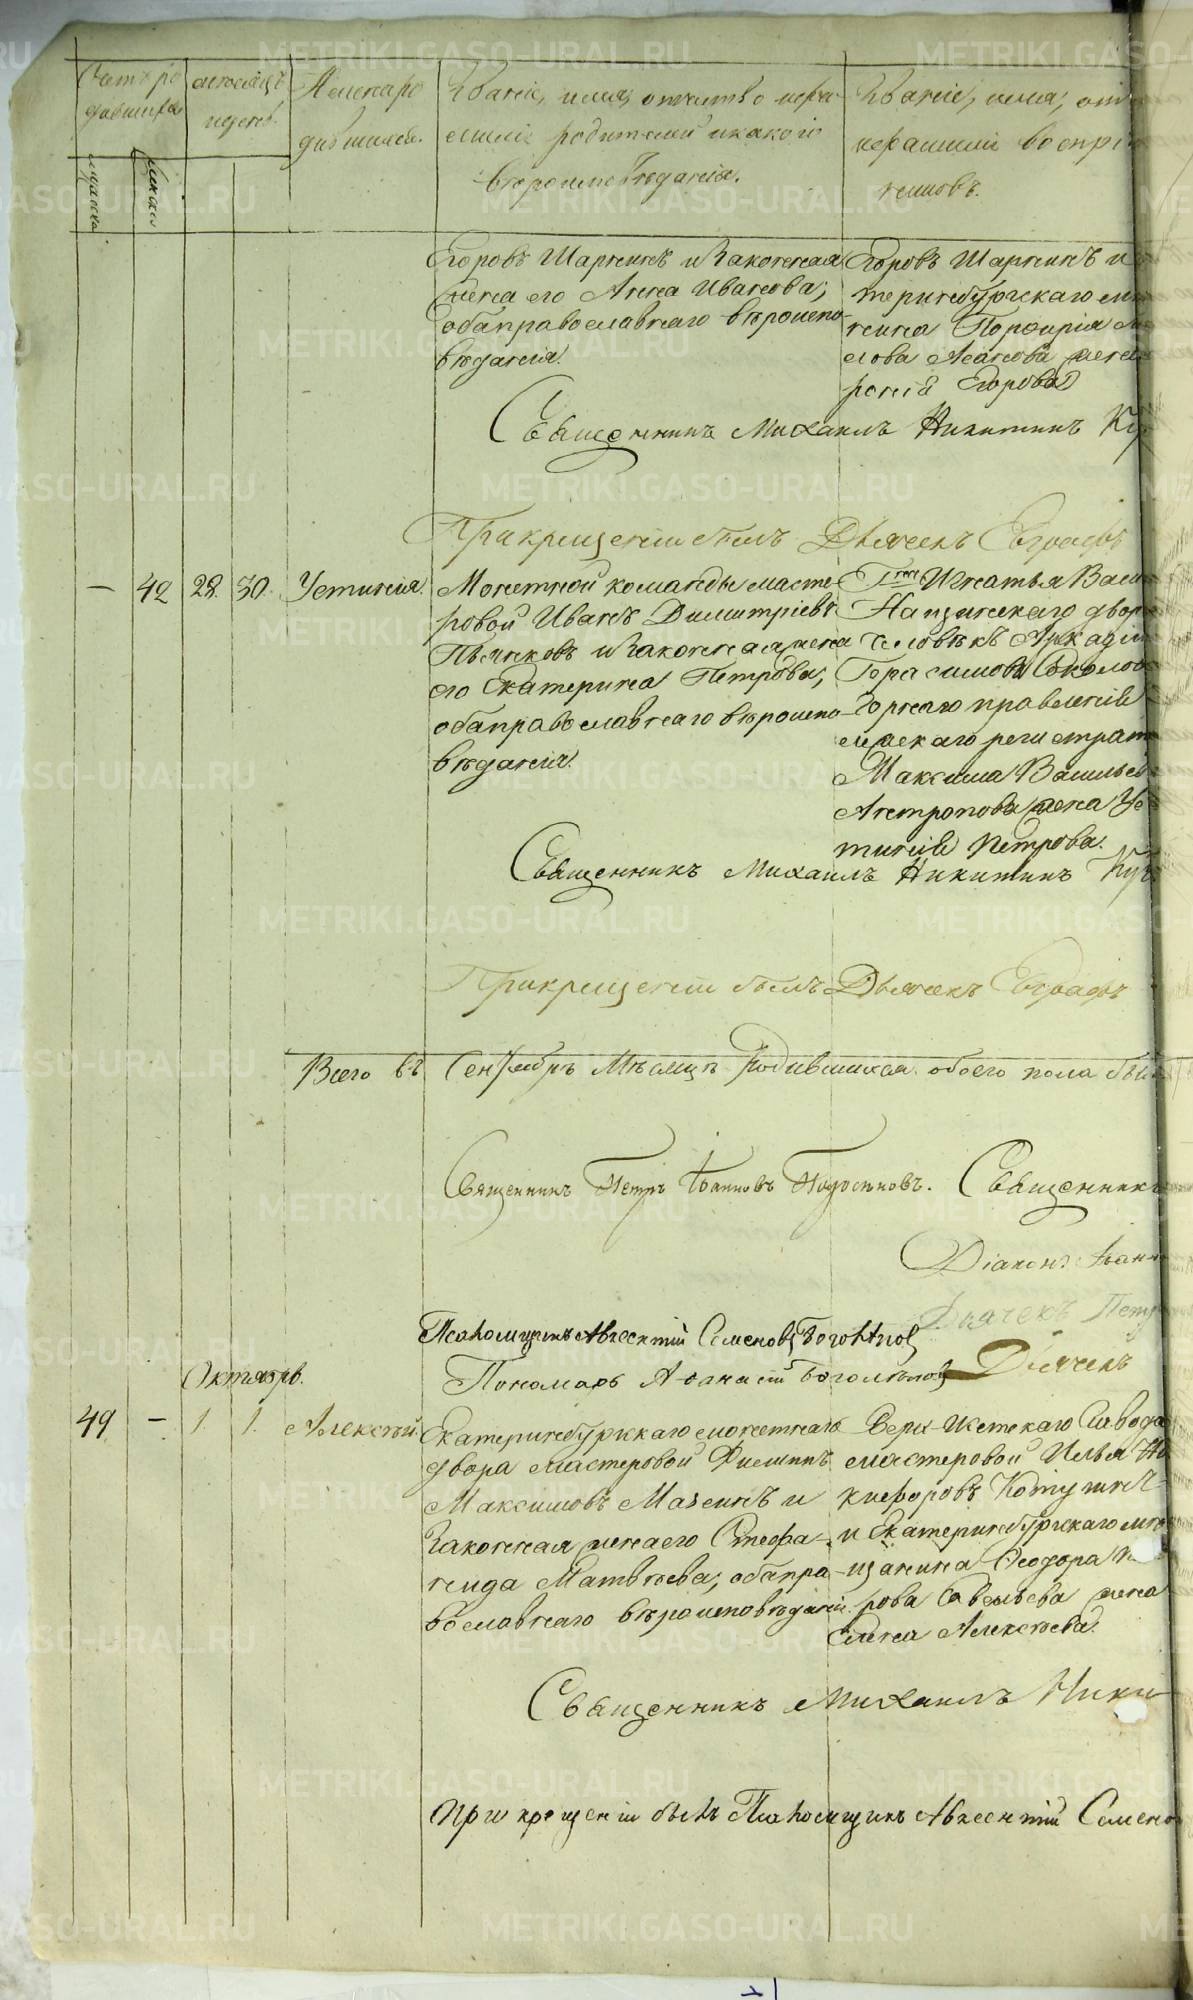 Счетъ ро
дившихся
мѣсяцъ
и день.
Имена ро
дившихся.
Званіе, имя, отчество и фа
милія родителей и какого
вѣроисповѣданія.
Званіе, имя, от
и фамилія воспрі
емниковъ.
мужска
женска
Егоровъ Шаркинъ и законная
жена его Анна Иванова;
оба православнаго вѣроиспо-
вѣданія.
Егоровъ Шаркинъ и
теринбургскаго
Порфирія
жена
Егорова
Священникъ Михаилъ Никитинъ
При крещеніи былъ Дьячекъ Евграфъ
—
42
28.
30.
Устинія.
Монетной команды масте-
ровой Иванъ Димитріевъ
Пьянковъ и законная жена
его Екатерина Петрова;
оба православнаго вѣроиспо-
вѣданія.
Гна Игнатья
двор
человѣкъ Аркадій
Горнаго правленія
скаго регистрат
Максима Василье
Антропова жена Ус
тинія Петрова.
Священникъ Михаилъ Никитинъ
При крещеніи былъ Дьячекъ Евграфъ
Всего въ Сентябрѣ Мѣсяцѣ родившихся обоего пола
Священникъ Петръ Іоанновъ
Священникъ
Діаконъ Іоанн
Дьячекъ Петр
Псаломщикъ Авксентій Семеновъ
Пономарь Аѳанасій Боголѣповъ
Дьячекъ
Октябрь.
49
—
1.
1.
Алексѣй.
Екатеринбургскаго монетнаго
двора мастеровой Филиппъ
Максимовъ и
законная жена его Стефа-
нида Матвѣева; оба пра-
вославнаго вѣроисповѣданія.
Верх-Исетскаго завода
мастеровой Илья Ни
кифоровъ
и Екатеринбургскаго мѣ
щанина Ѳеодора
рова Савельева жена
Елена Алексѣева.
Священникъ Михаилъ Ники
При крещеніи былъ Псаломщикъ Авксентій Семено
METRIKI.GASO-URAL.RU